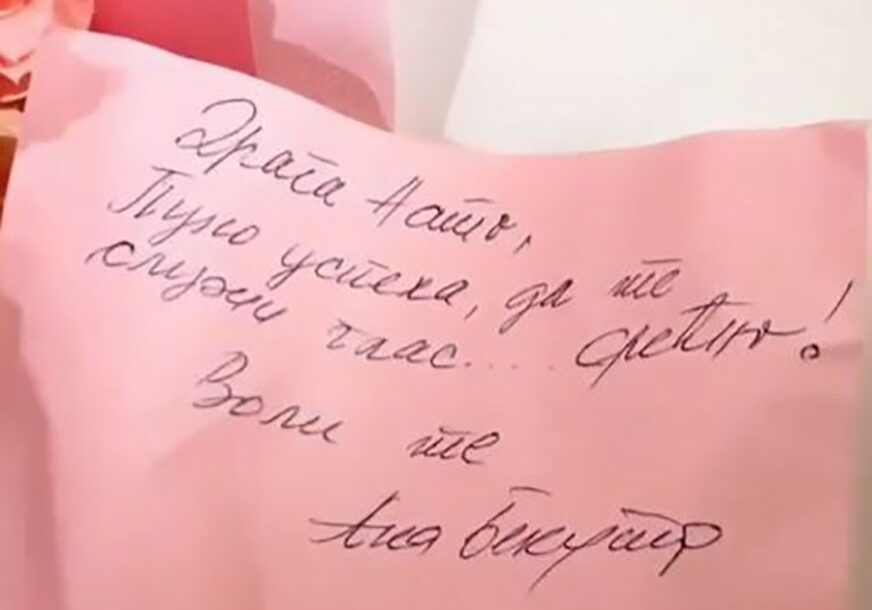 Драга Нато,
Пуно успеха, да те
служи глас.... срећно!
Воли те
Ана Бекута